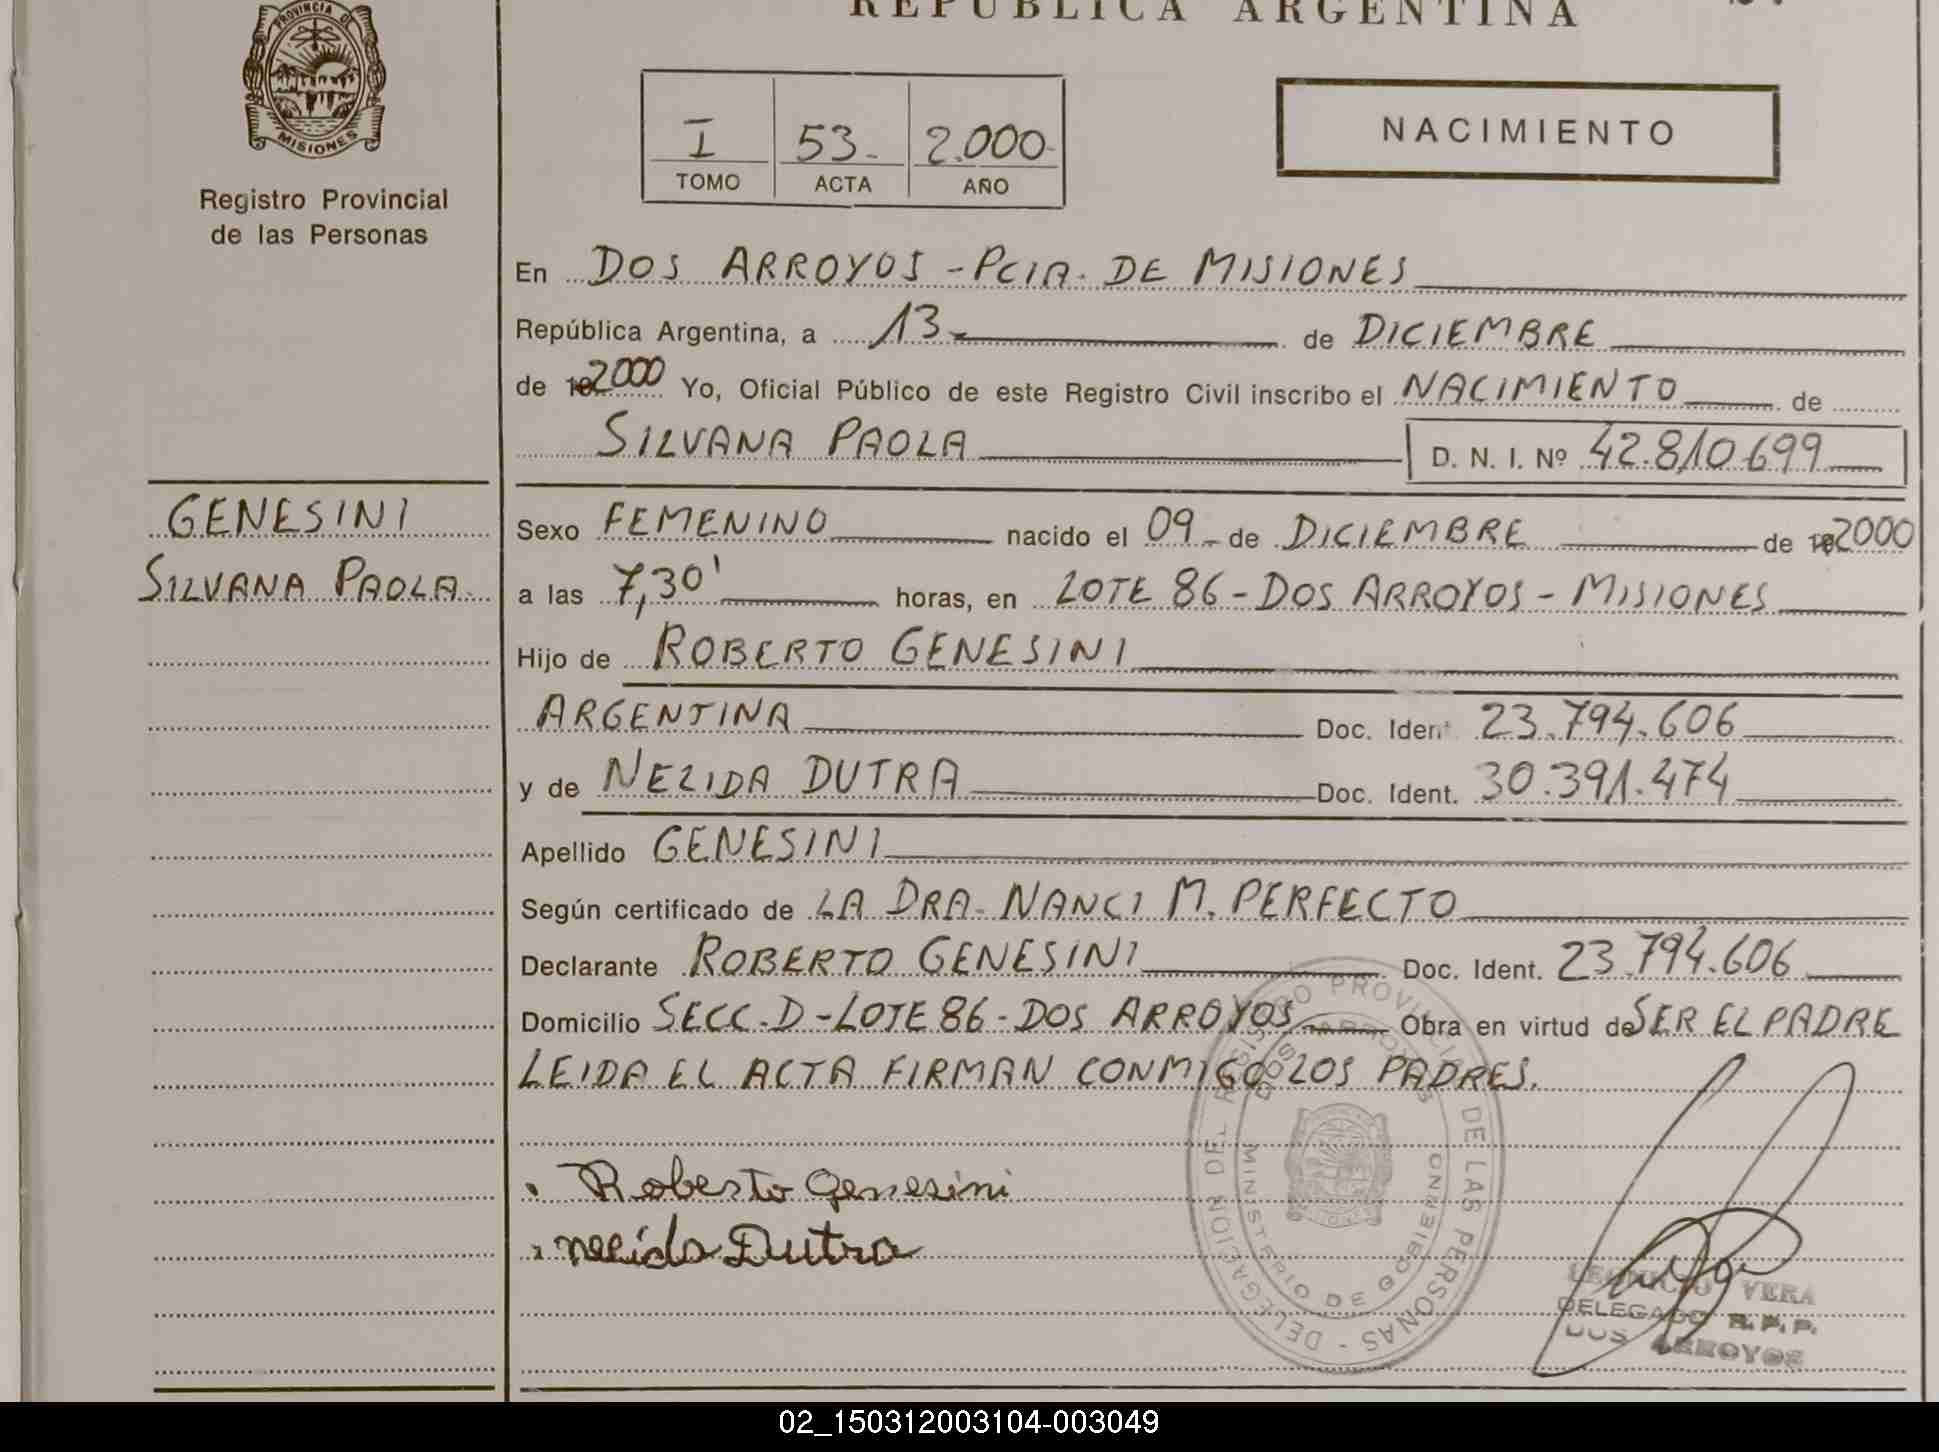 REPUBLICA ARGENTINA
PROVINCIA D
MISIONES
Registro Provincial
de las Personas
I 53- 2.000-
TOMO ACTA AÑO
NACIMIENTO
En DOS ARROYOS - PCIA. DE MISIONES
República Argentina, a 13- de DICIEMBRE
de 19 2000 Yo, Oficial Público de este Registro Civil inscribo el NACIMIENTO de
SILVANA PAOLA D. N. I. Nº 42.810.699
GENESINI
SILVANA PAOLA
Sexo FEMENINO nacido el 09 de DICIEMBRE de 19 2000
a las 7,30' horas, en LOTE 86 - DOS ARROYOS - MISIONES
Hijo de ROBERTO GENESINI
ARGENTINA Doc. Ident 23.794.606
y de NELIDA DUTRA Doc. Ident. 30.391.474
Apellido GENESINI
Según certificado de LA DRA. NANCI M. PERFECTO
Declarante ROBERTO GENESINI Doc. Ident. 23.794.606
Domicilio SECC. D - LOTE 86 - DOS ARROYOS Obra en virtud de SER EL PADRE
LEIDA EL ACTA FIRMAN CONMIGO LOS PADRES.
Roberto Genesini
nelida Dutra
DELEGACION DEL REGISTRO PROVINCIAL DE LAS PERSONAS -
DOS ARROYOS
MINISTERIO DE GOBIERNO
VERA
DELEGADO R. P. P.
DOS ARROYOS
02_150312003104-003049